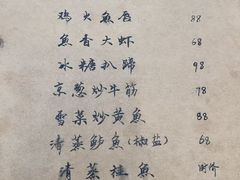 鸡火魚唇 88
魚香大虾 68
冰糖扒蹄 98
京葱炒牛筋 78
雪菜炒黄魚 88
清蒸鲈魚(椒盐) 68
清蒸桂魚 时价